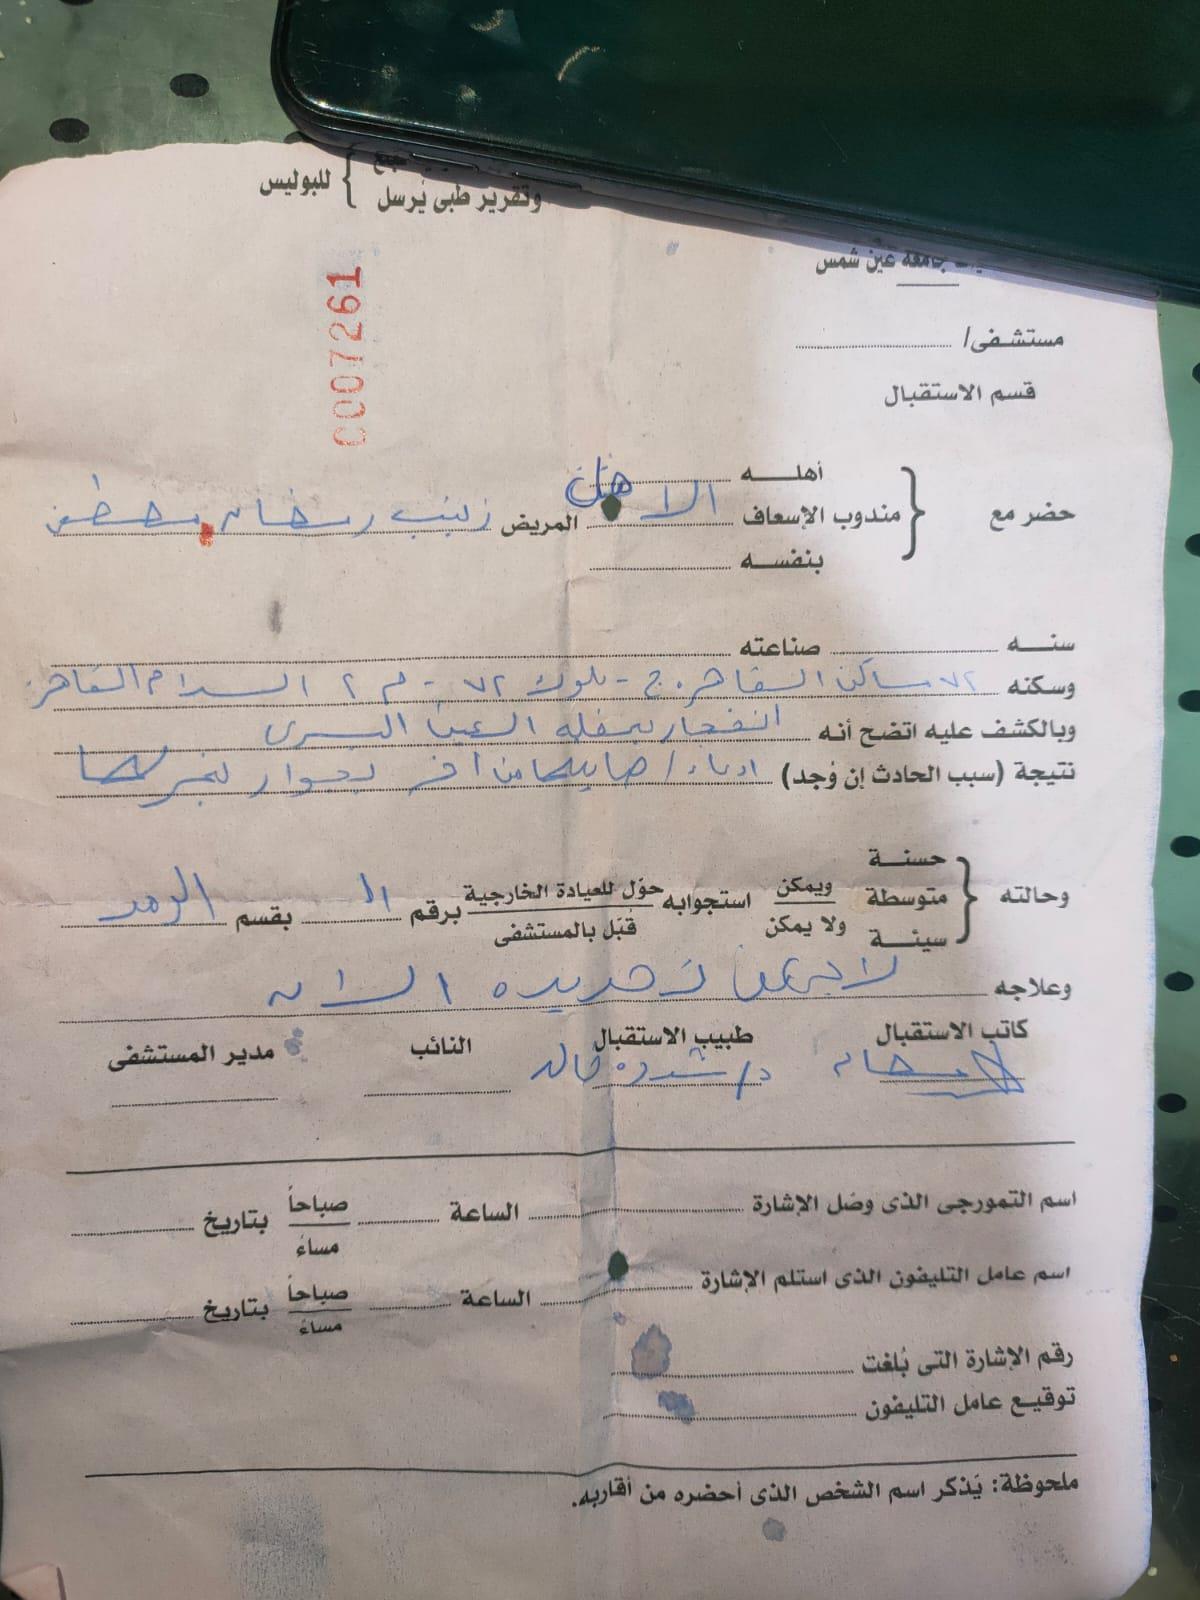 وتقرير طبى يُرسل } للبوليس
جامعة عين شمس
0007261
مستشفى/
قسم الاستقبال
أهله
حضر مع } مندوب الإسعاف الاهل المريض زينب رمضان مصطفى
بنفسه
سنه صناعته
وسكنه ٧٢ مساكن القاهرة - بلوك ٧٢ - م ٢ السلام القاهرة
وبالكشف عليه اتضح أنه انفجار بمقلة العين اليسرى
نتيجة (سبب الحادث إن وُجد) ادعاء/ اصابتها من اخر بجوار
حسنة
وحالته } متوسطة ويمكن استجوابه حوّل للعيادة الخارجية برقم بقسم الرمد
سيئة ولا يمكن قبَل بالمستشفى
وعلاجه لا يمكن تحديده الان
كاتب الاستقبال طبيب الاستقبال النائب مدير المستشفى
د/ خالد
اسم التمورجى الذى وصَل الإشارة الساعة صباحاً بتاريخ
مساءً
اسم عامل التليفون الذى استلم الإشارة الساعة صباحاً بتاريخ
مساءً
رقم الإشارة التى بُلغت
توقيع عامل التليفون
ملحوظة: يَذكر اسم الشخص الذى أحضره من أقاربه.